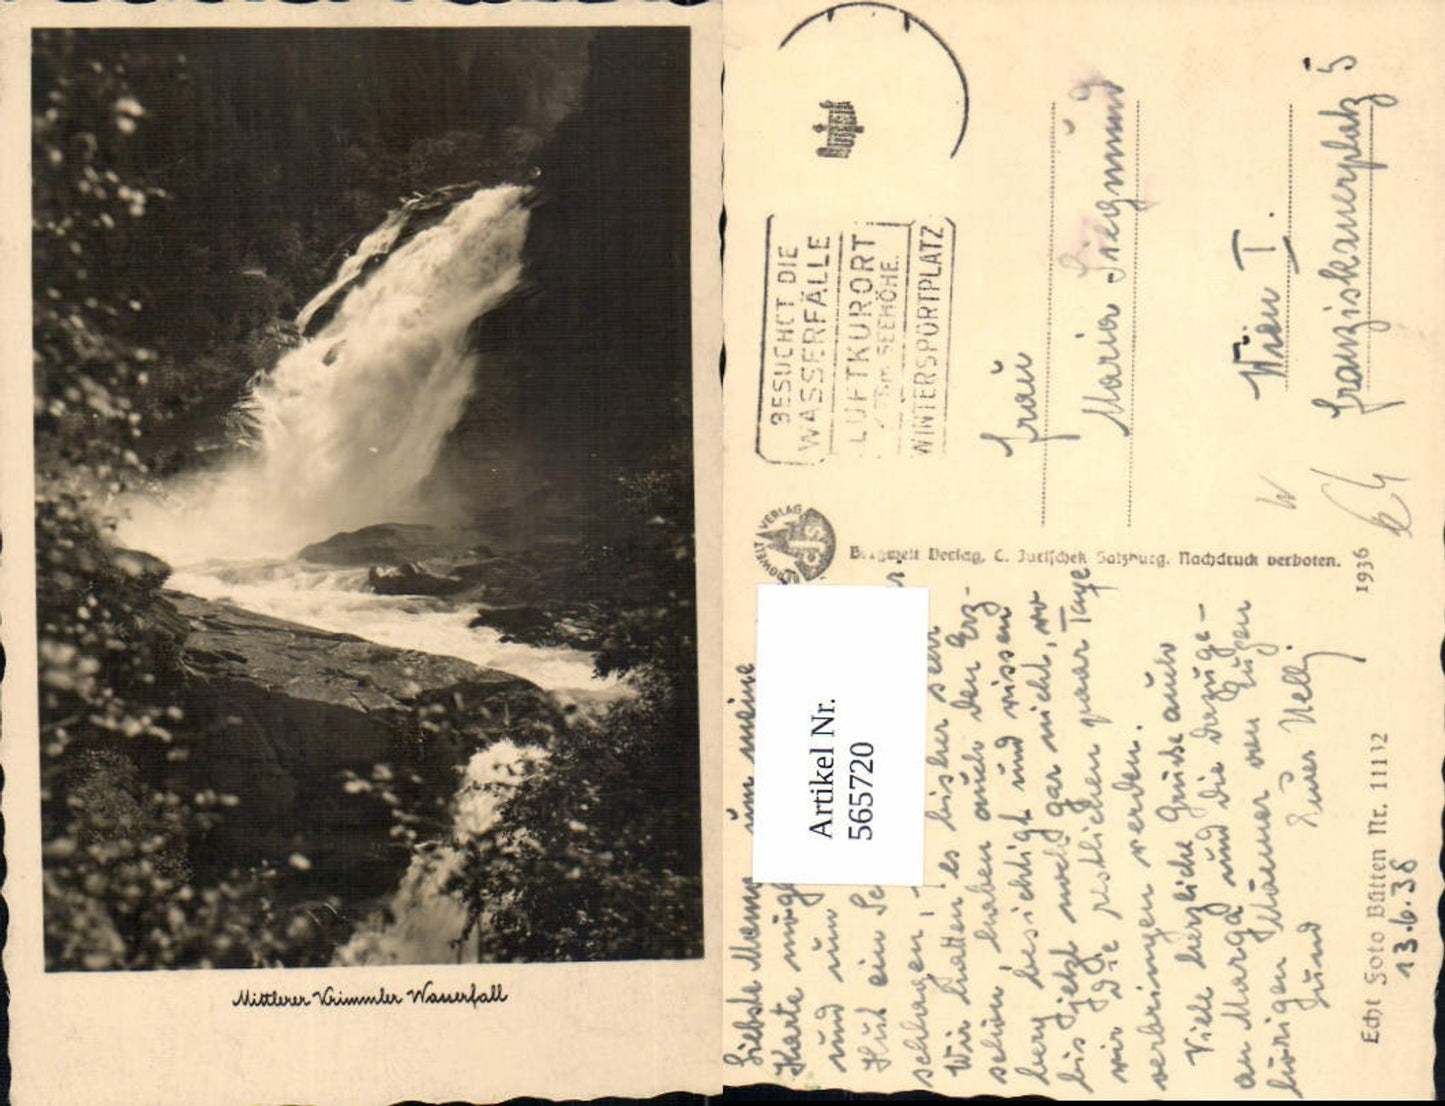 Mittlerer Krimmler Wasserfall
BESUCHET DIE
WASSERFÄLLE
LUFTKURORT
SEEHÖHE.
WINTERSPORTPLATZ
Frau
Maria Siegmund
Wien I.
Franziskanerplatz 5
BERGWELT VERLAG
Bergwelt Verlag, C. Jurischek Salzburg. Nachdruck verboten.
1936
Artikel Nr.
565720
Liebste Mem um meine
Karte mög
und nun
Hut ein Sc
schlagen,
Wir hatten es bisher sehr
schön, haben auch den Erz-
berg besichtigt und wissen
bis jetzt noch gar nicht, wo
wir die restlichen paar Tage
verbringen werden.
Viele herzliche Grüße auch
an Marga und die dazuge-
hörigen Männer von Eugen
und Eurer Nelly
Echt Foto Bütten Nr. 11132
13.6.38